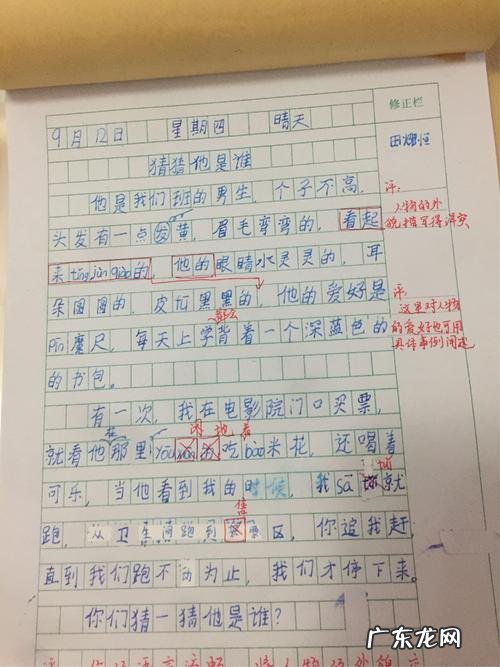 修正栏
9月12日 星期四 晴天
田耀恒
猜猜他是谁
他是我们班的男生,个子不高,
评:
人物的外
貌描写得详实
头发有一点发黄,眉毛弯弯的,看起
来tǐng jùn qiào的,他的眼睛水灵灵的,耳
朵圆圆的,皮肤黑黑的,他的爱好是
评:
这里对人物
的爱好也可用
具体事例阐述
pīn魔尺,每天上学背着一个深蓝色的
的书包。
有一次,我在电影院门口买票,
闲地着
就看他那里yōu 吃bào米花,还喝着
在
可乐,当他看到我的时候,我sā 就
跑,从卫生间跑到 票区,你追我赶,
售
直到我们跑不动为止,我们才停下来。
你们猜一猜他是谁?
广东龙网